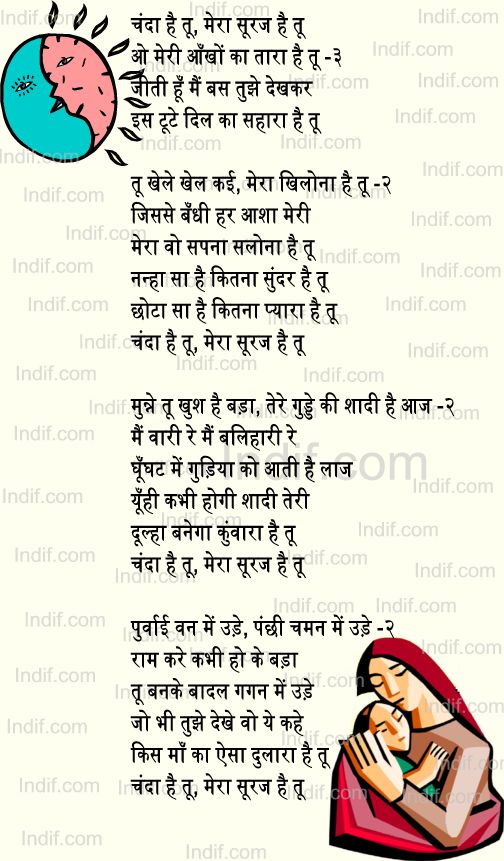 चंदा है तू, मेरा सूरज है तू
ओ मेरी आँखों का तारा है तू -३
जीती हूँ मैं बस तुझे देखकर
इस टूटे दिल का सहारा है तू
तू खेले खेल कई, मेरा खिलोना है तू -२
जिससे बँधी हर आशा मेरी
मेरा वो सपना सलोना है तू
नन्हा सा है कितना सुंदर है तू
छोटा सा है कितना प्यारा है तू
चंदा है तू, मेरा सूरज है तू
मुन्ने तू खुश है बड़ा, तेरे गुड्डे की शादी है आज -२
मैं वारी रे मैं बलिहारी रे
घूँघट में गुड़िया को आती है लाज
यूँही कभी होगी शादी तेरी
दूल्हा बनेगा कुंवारा है तू
चंदा है तू, मेरा सूरज है तू
पुर्वाई वन में उड़े, पंछी चमन में उड़े -२
राम करे कभी हो के बड़ा
तू बनके बादल गगन में उड़े
जो भी तुझे देखे वो ये कहे
किस माँ का ऐसा दुलारा है तू
चंदा है तू, मेरा सूरज है तू
Indif.com